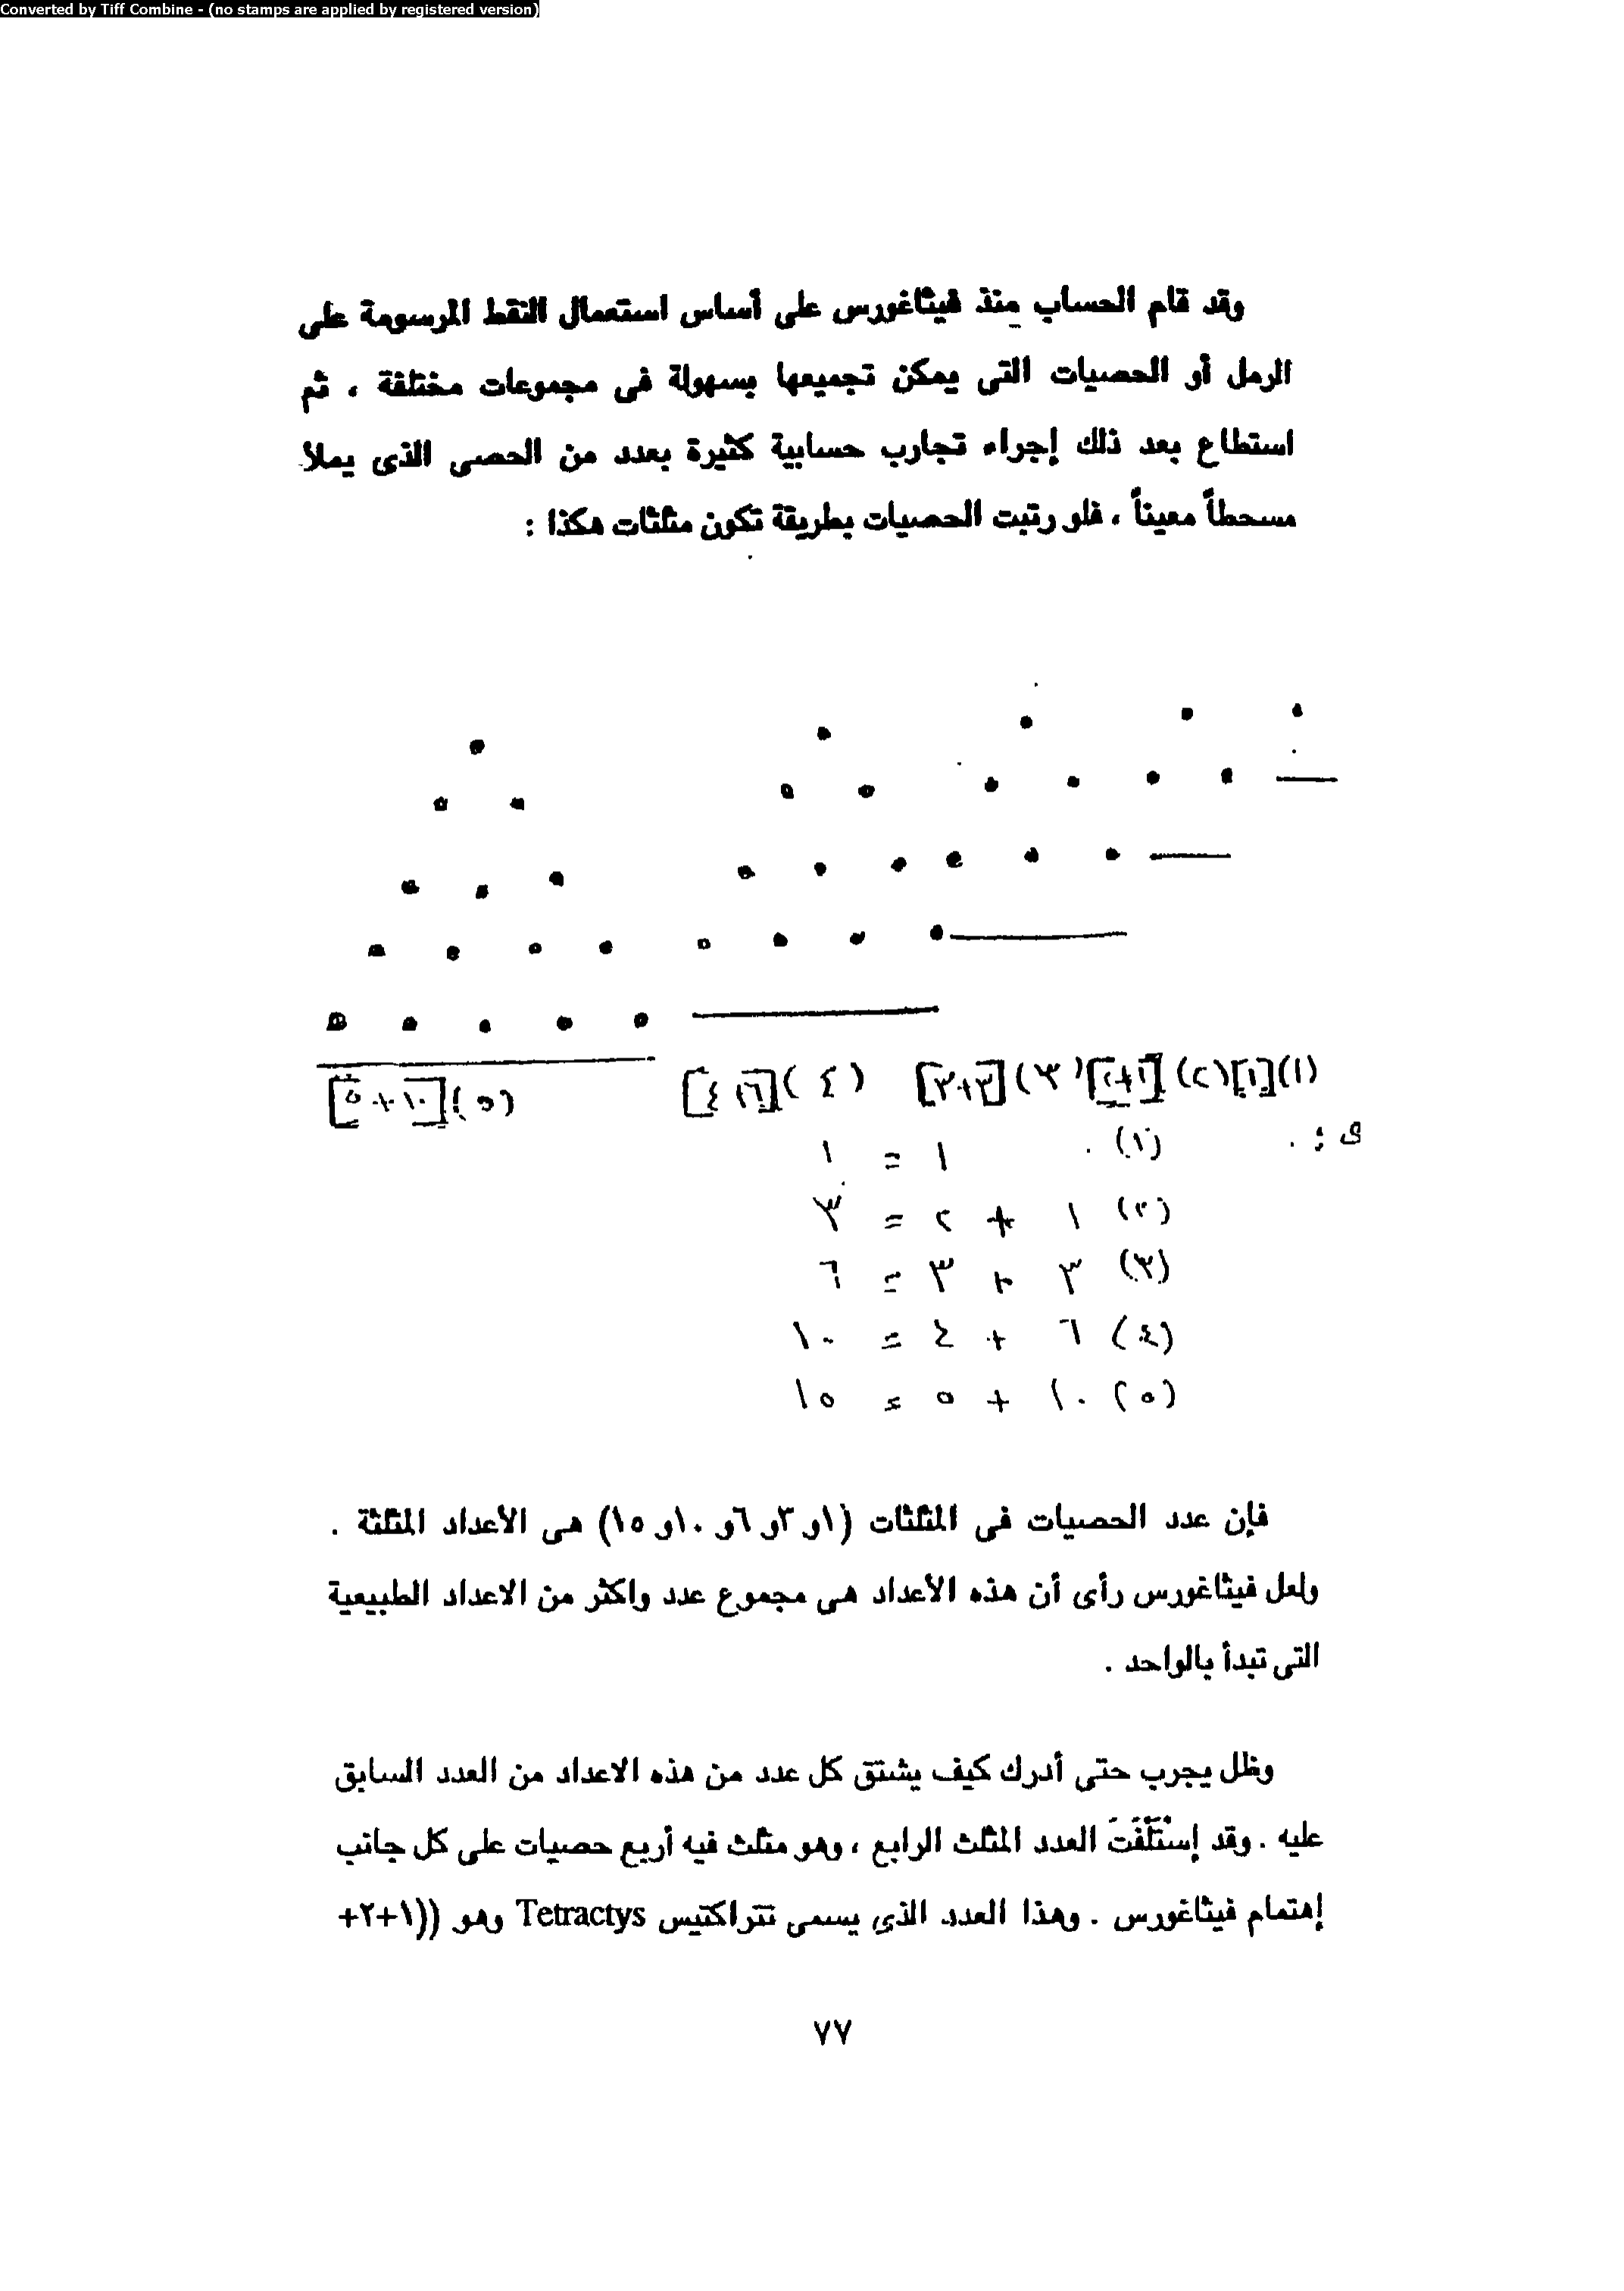 Converted by Tiff Combine - (no stamps are applied by registered version)
وقد قام الحساب منذ فيثاغورس على أساس استعمال النقط المرسومة على
الرمل أو الحصيات التى يمكن تجميعها بسهولة فى مجموعات مختلفة ، ثم
استطاع بعد ذلك إجراء تجارب حسابية كثيرة بعدد من الحصى الذى يملأ
مسحطاً معيناً ، فلو رتبت الحصيات بطريقة تكون مثلثات هكذا :
(١)[١](٢)[١+٢](٣)[٣+٣] (٤)[٦+٤] (٥)[١٠+٥]
(١) ١ = ١
(٢) ١ + ٢ = ٣
(٣) ٣ + ٣ = ٦
(٤) ٦ + ٤ = ١٠
(٥) ١٠ + ٥ = ١٥
فإن عدد الحصيات فى المثلثات (١و ٣و ٦و ١٠و ١٥) هى الأعداد المثلثة .
ولعل فيثاغورس رأى أن هذه الأعداد هى مجموع عدد واكثر من الاعداد الطبيعية
التى تبدأ بالواحد .
وظل يجرب حتى أدرك كيف يشتق كل عدد من هذه الاعداد من العدد السابق
عليه . وقد إستلفت العدد المثلث الرابع ، وهو مثلث فيه أربع حصيات على كل جانب
إهتمام فيثاغورس . وهذا العدد الذى يسمى تتراكتيس Tetractys وهو ((١+٢+
٧٧